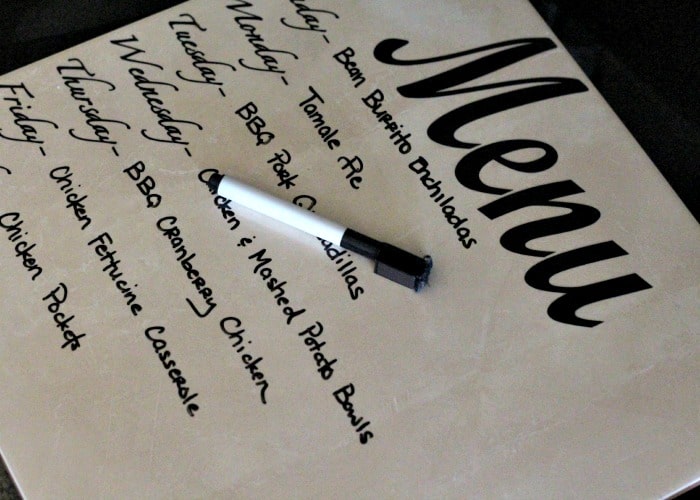 Menu
day- Bean Burrito Enchiladas
Monday- Tamale Pie
Tuesday- BBQ Pork adillas
Wednesday- Chicken & Mashed Potato Bowls
Thursday- BBQ Cranberry Chicken
Friday- Chicken Fettucine Casserole
Chicken Pockets